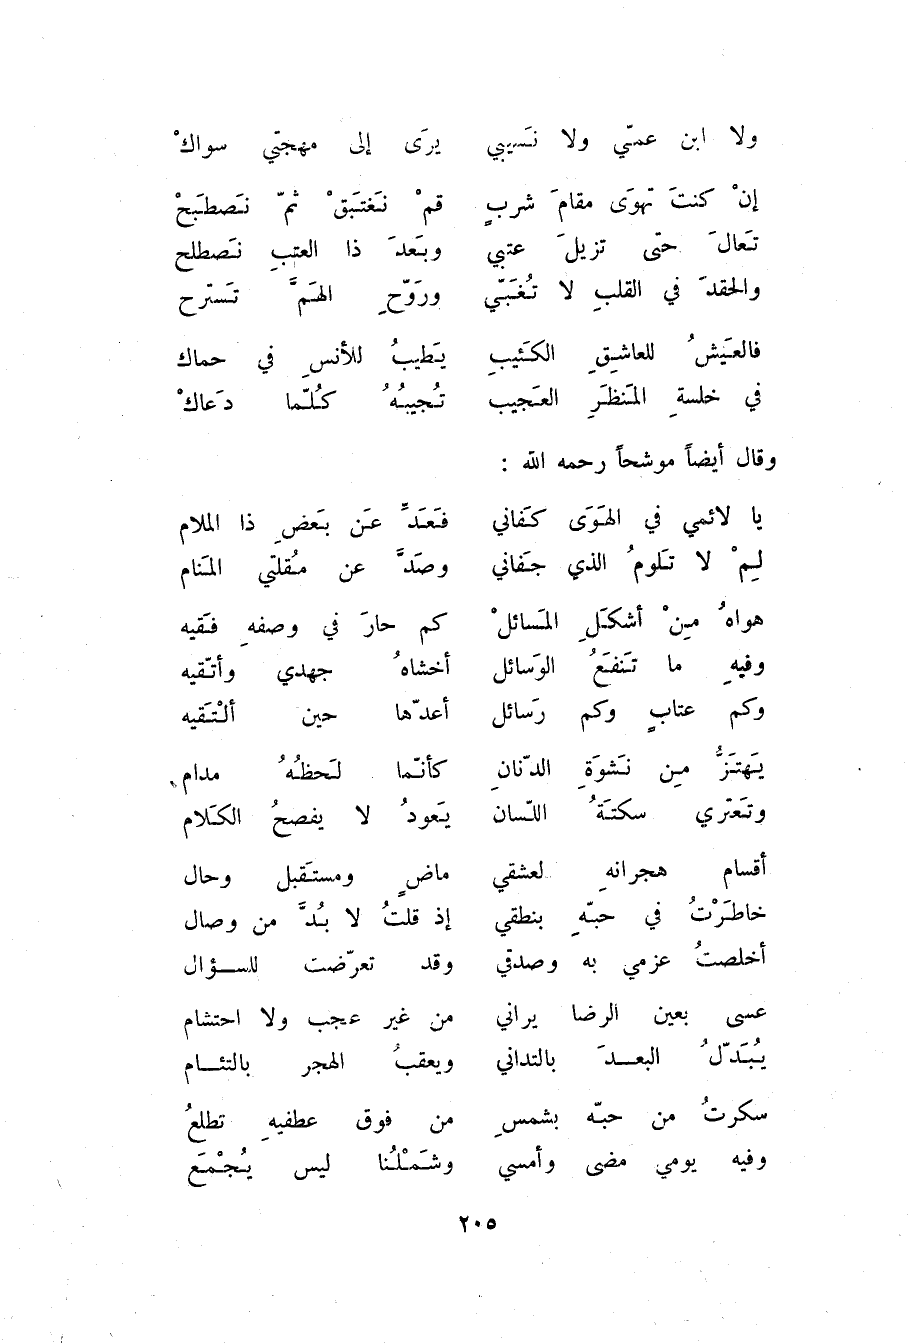 ولا ابن عمّي ولا نَسيبي يرَى إلى مهجتي سواكْ
إنْ كنتَ تهوَى مقامَ شربٍ قمْ نَغتَبقْ ثمّ نَصطَبحْ
تَعالَ حتى تزيلَ عتبي وبَعدَ ذا العتبِ نَصطلح
والحقدَ في القلبِ لا تُغَبّي ورَوّحِ الهَمَّ تَسترح
فالعَيشُ للعاشِقِ الكَئيبِ يَطيبُ للأنسِ في حماك
في خلسةِ المَنظَرِ العَجيب تُجيبُهُ كُلّما دَعاكْ
وقال أيضاً موشحاً رحمه الله :
يا لائمي في الهَوَى كَفاني فَعَدِّ عَن بَعضِ ذا الملام
لِمْ لا تَلومُ الذي جَفاني وصَدَّ عن مُقلتي المَنام
هواهُ مِنْ أشكَلِ المَسائلْ كم حارَ في وصفهِ فَقيه
وفيهِ ما تَنفَعُ الوَسائل أخشاهُ جهدي وأتّقيه
وكم عتابٍ وكم رَسائل أعدّها حين ألْتَقيه
يَهتَزُّ مِن نَشوَةِ الدّنانِ كأنّما لَحظُهُ مدام
وتَعتري سكتَةُ اللّسان يَعودُ لا يفصحُ الكَلام
أقسام هجرانهِ لعشقي ماضٍ ومستَقبل وحال
خاطَرْتُ في حبّهِ بنطقي إذ قلتُ لا بُدَّ من وصال
أخلصتُ عزمي به وصدقي وقد تعرّضت للسؤال
عسى بعين الرضا يراني من غير عجب ولا احتشام
يُبَدّلُ البعدَ بالتداني ويعقبُ الهجر بالتئام
سكرتُ من حبّه بشمسِ من فوق عطفيهِ تطلعُ
وفيه يومي مضى وأمسي وشَمْلُنا ليس يُجْمَع
٢٠٥